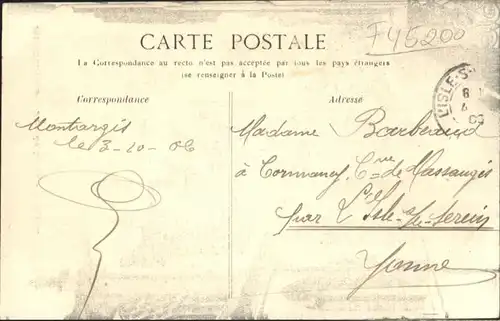 F45200
CARTE POSTALE
La Correspondance au recto n'est pas acceptée par tous les pays étrangers
(se renseigner à la Poste)
Correspondance
Adresse
L'ISLE-S
8
4
06
Montargis
le 3-10-06
Madame Barberaud
à Cormanoy, Cne de Massangis
par L'Isle s/s Serein
Yonne